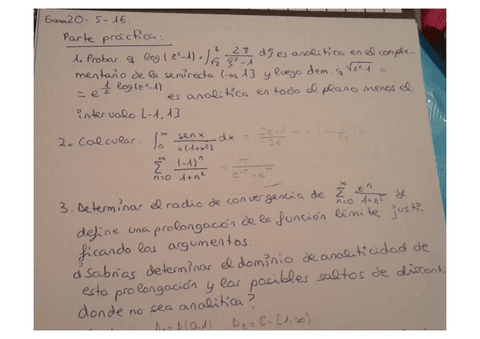 Examen 20-5-16.
Parte práctica:
1. Probar q log(z²-1) = ∫_{√2}^{z} 2ζ/(ζ²-1) dζ es analítica en el comple-
mentario de la semirecta [-∞, 1] y luego dem. q √(z²-1) =
= e^{½ log(z²-1)} es analítica en todo el plano menos el
intervalo [-1, 1]
2. Calcular: ∫_0^∞ sen x / x(1+x²) dx =
∑_{n=0}^∞ (-1)^n / 1+n² = π / e^{-π} - e^π
3. Determinar el radio de convergencia de ∑_{n=0}^∞ z^n / 1+n² y
define una prolongación de la función límite justi-
ficando los argumentos.
¿Sabrías determinar el dominio de analiticidad de
esta prolongación y los posibles saltos de discont.
donde no sea analítica?
D₁ = D(0,1), D₂ = ℂ - [1, ∞)